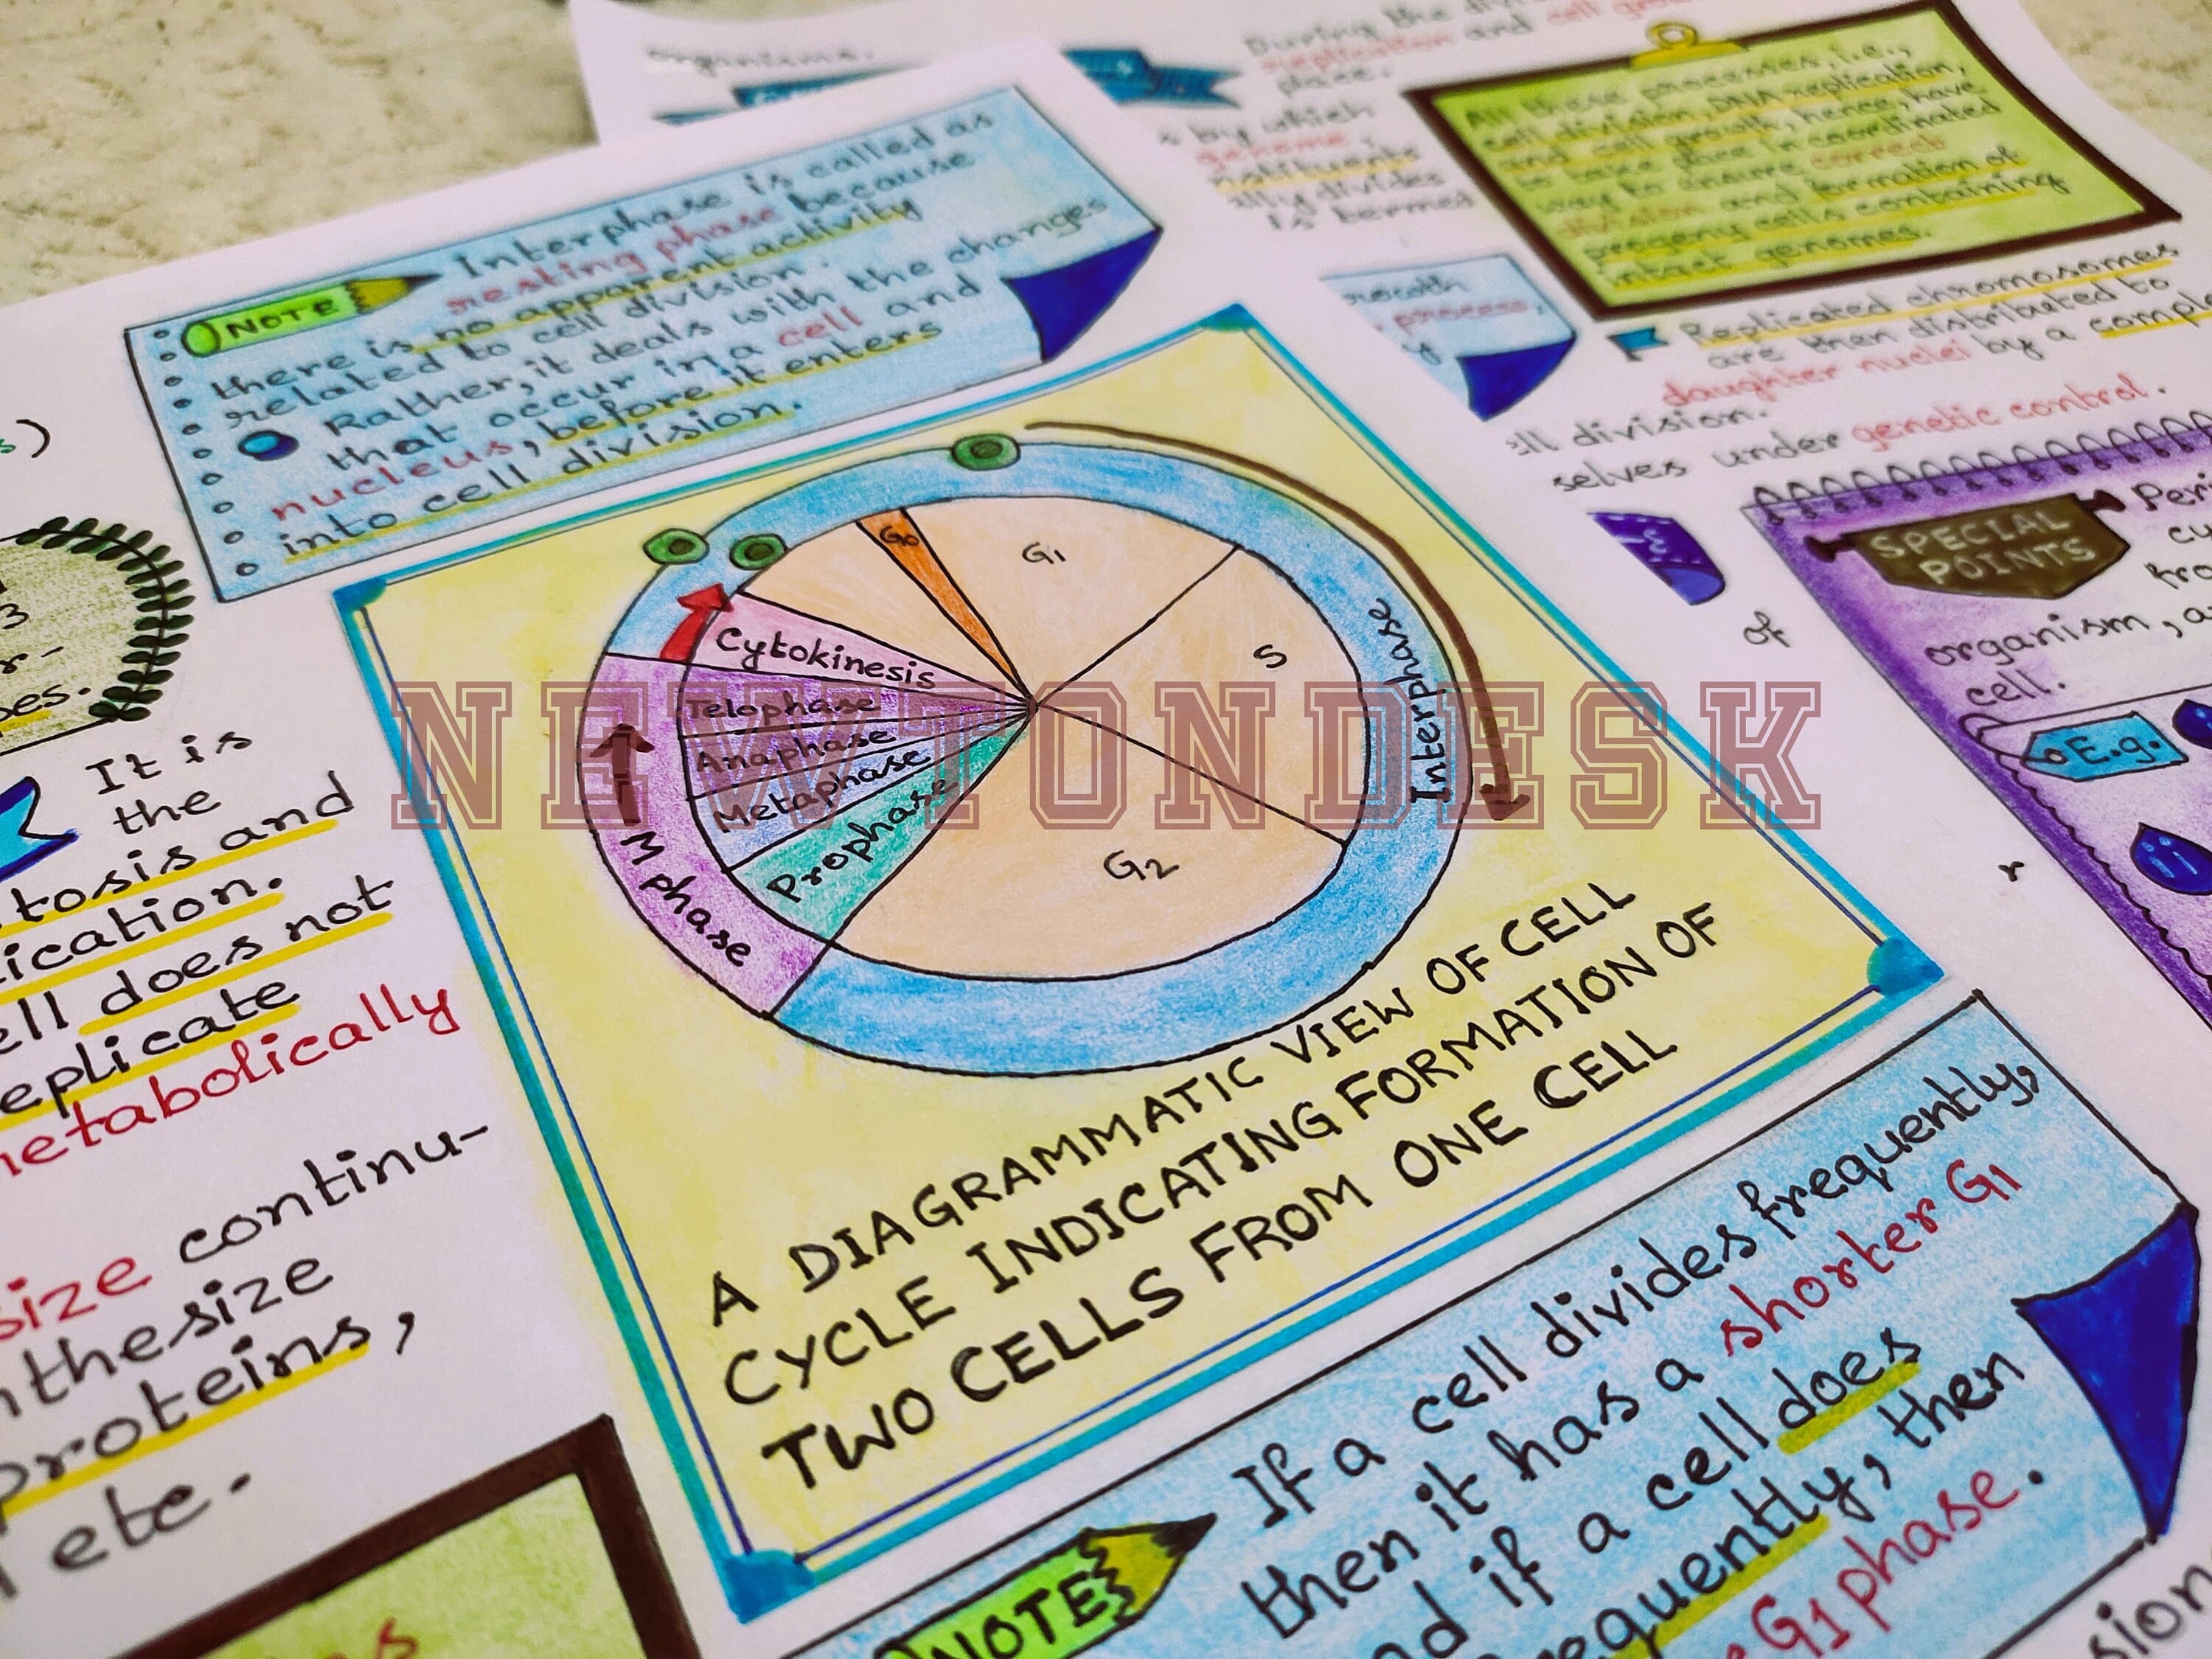 organisms.
During the
replication and cell
place.
s by which
genome
ally divides
is termed
All these processes, i.e.,
cell division, DNA replication,
and cell growth, hence, have
to take place in coordinated
way to ensure correct
division and formation of
progeny cells containing
intact genomes.
process,
Replicated chromosomes
are then distributed to
daughter nuclei by a
cell division.
selves under genetic control.
SPECIAL
POINTS
of
organism, a
cell.
E.g.
ii
r
NOTE
Interphase is called as
resting phase because
there is no apparent activity
related to cell division.
Rather, it deals with the changes
that occur in a cell and
nucleus, before it enters
into cell division.
3
It is
the
tosis and
ication.
ell does not
eplicate
metabolically
size continu-
nthesize
proteins,
etc.
G0
G1
S
G2
Cytokinesis
Telophase
Anaphase
Metaphase
Prophase
M phase
Interphase
A DIAGRAMMATIC VIEW OF CELL
CYCLE INDICATING FORMATION OF
TWO CELLS FROM ONE CELL
NEWTONDESK
NOTE
If a cell divides frequently,
then it has a shorter G1
nd if a cell does
requently, then
G1 phase.
sion